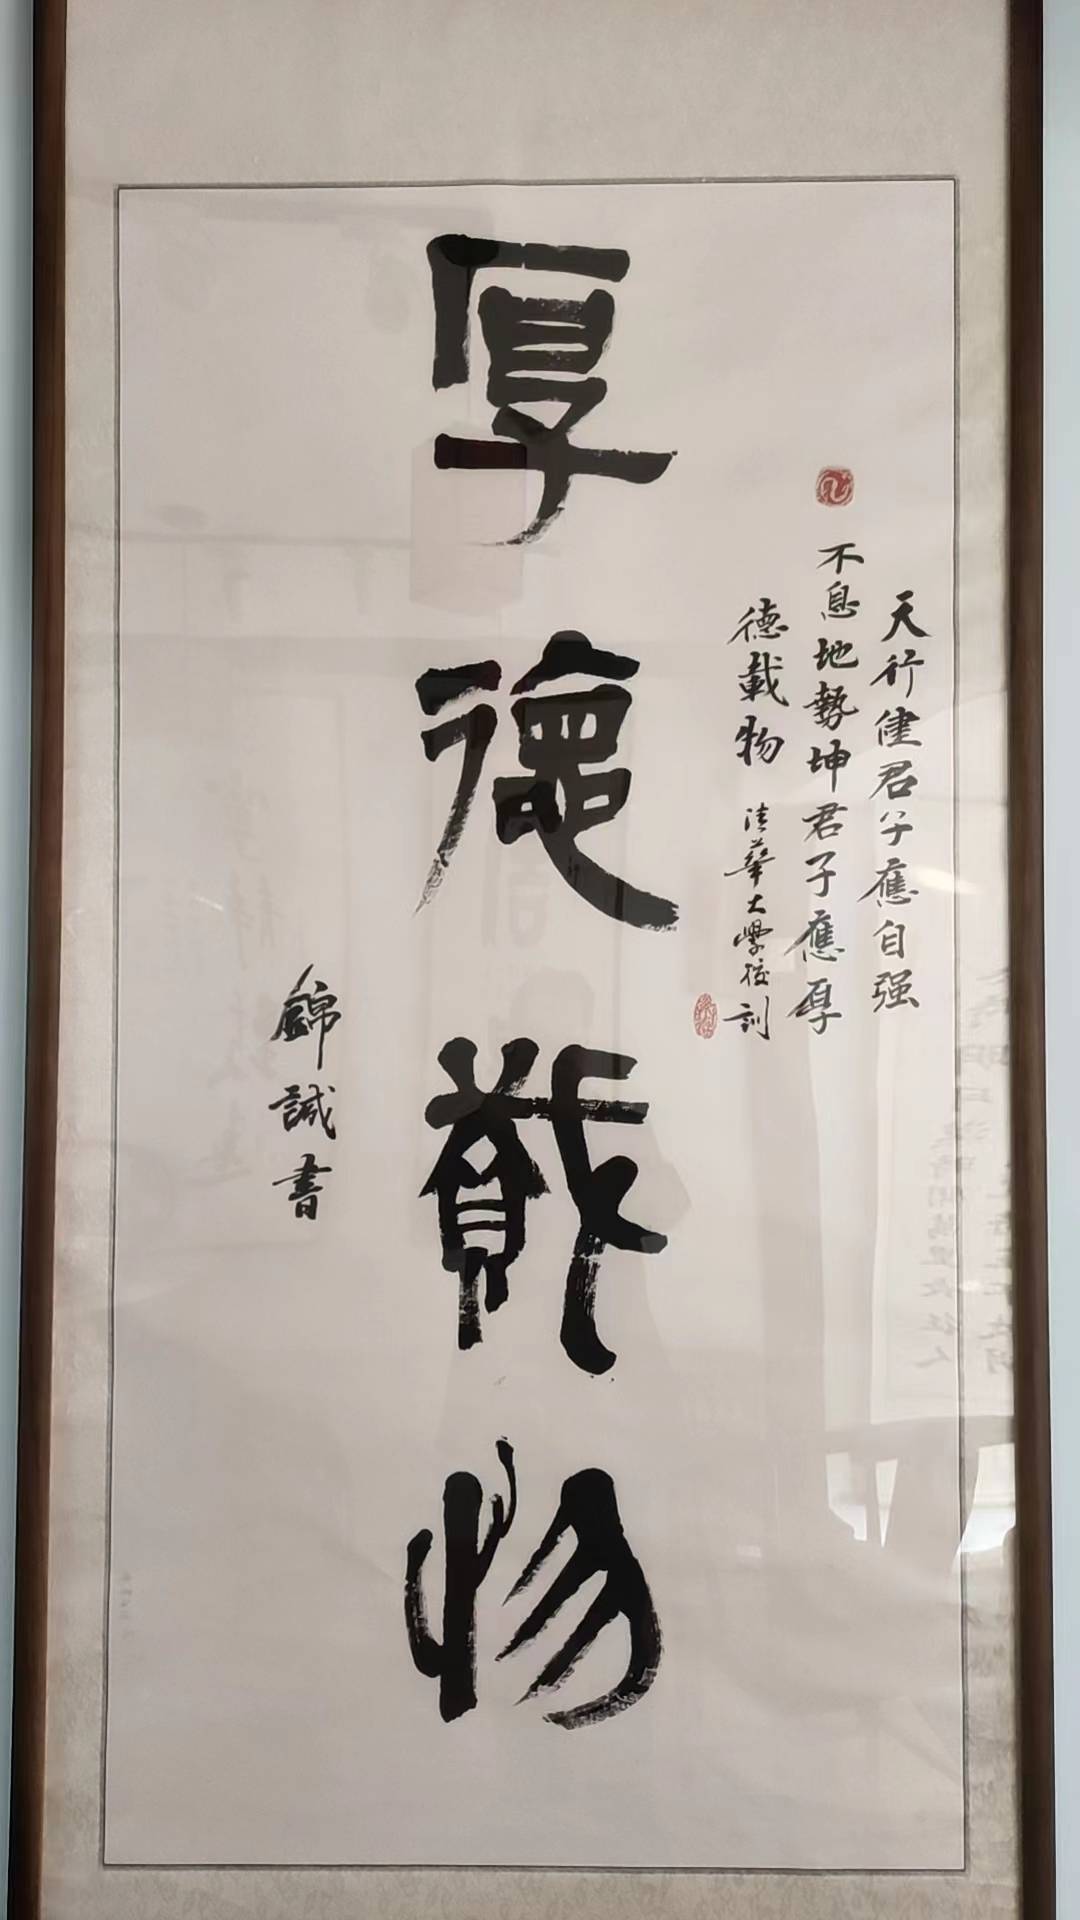 厚德載物
天行健君子應自强
不息地勢坤君子應厚
德載物 清華大學校訓
錦誠書